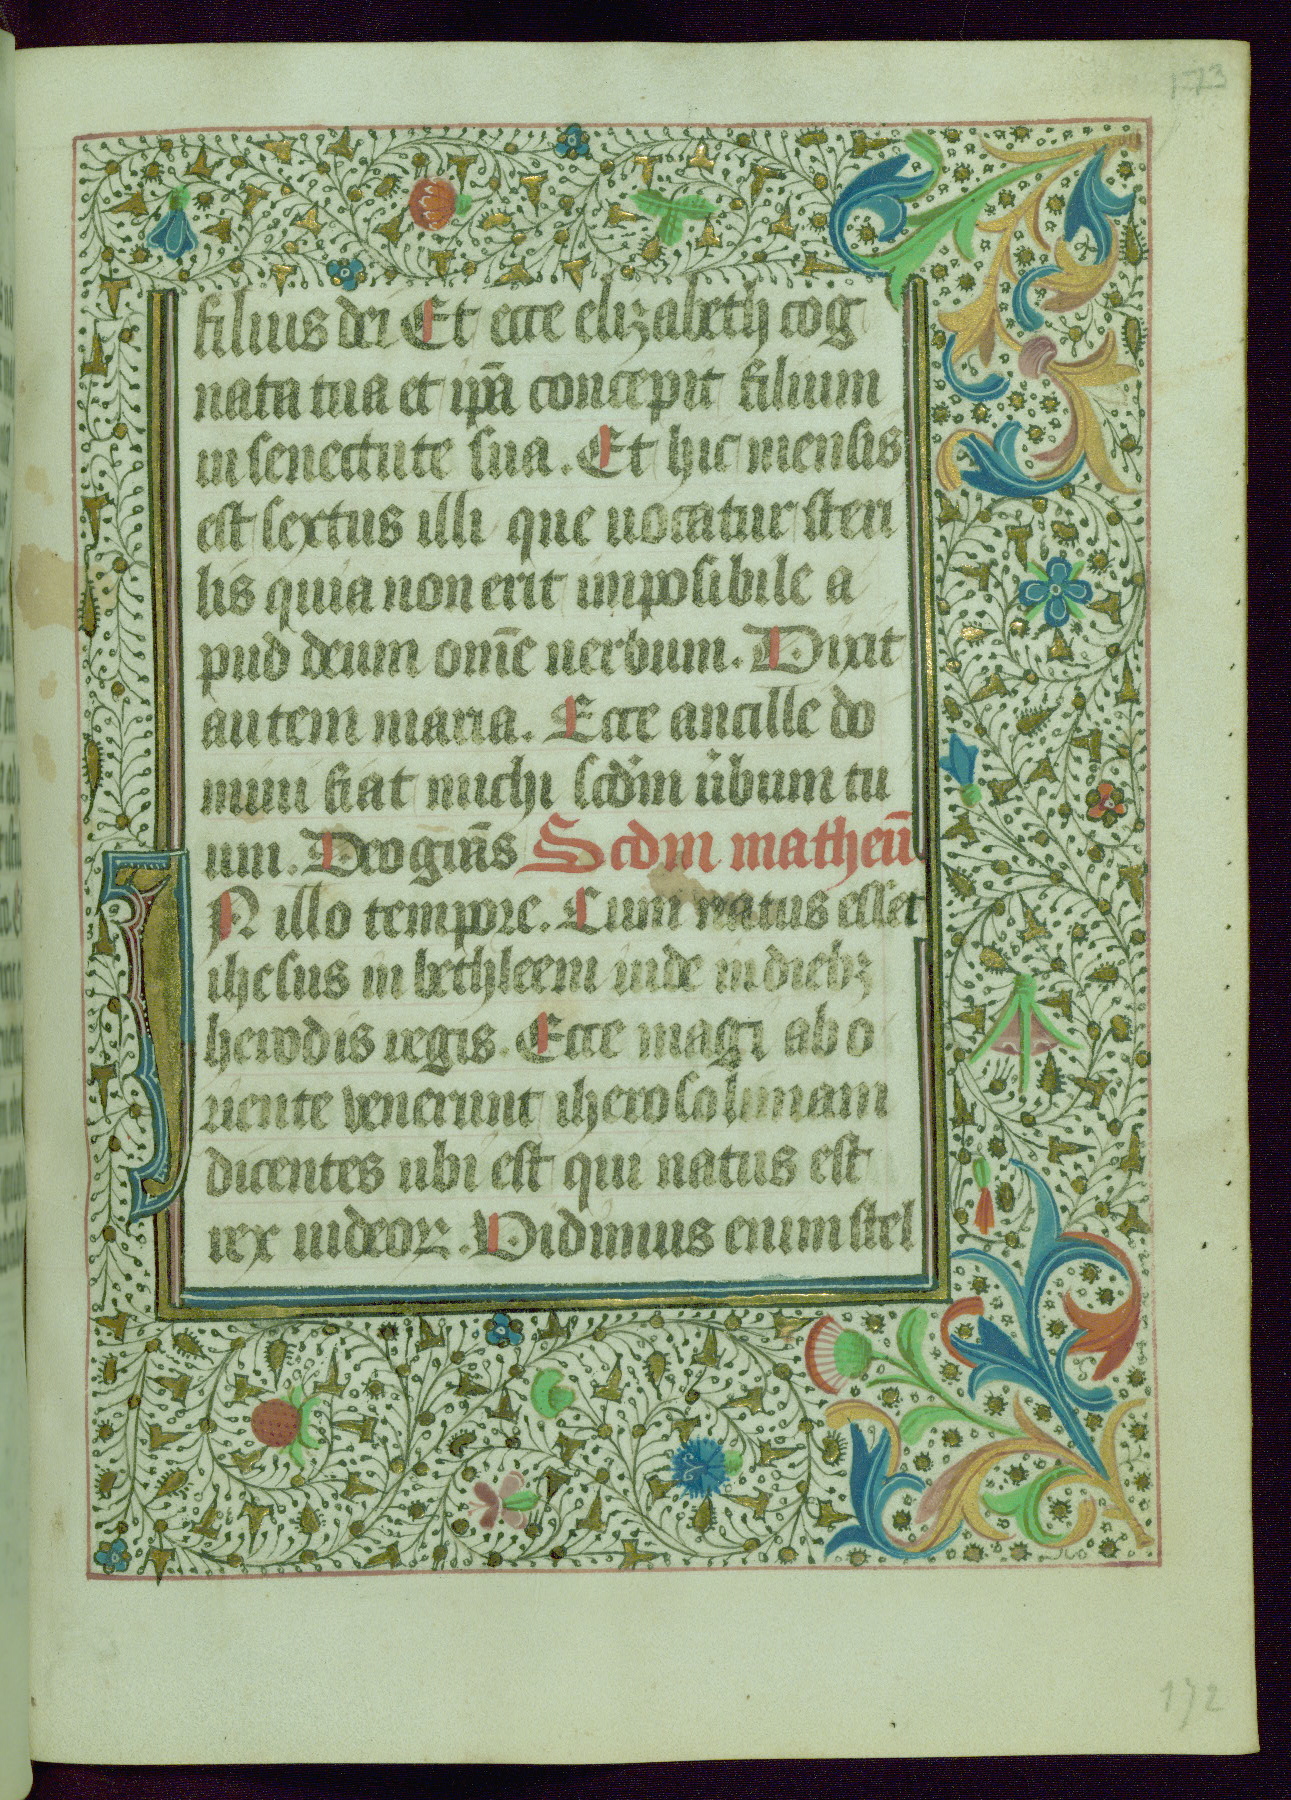 173
filius dei Et ecce elizabeth cog
nata tua et ip̄a concepit filium
in senectute sua. Et hic mensis
est sextus illi que uocatur steri
lis quia non erit imposibile a
pud deum om̄e uerbum. Dixit
autem maria. Ecce ancille do
mini fiat michi scd̄m u̇bum tu
um. Deo gr̄as Scdm matheū
IN illo tempore. Cum natus esset
ihesus in bethleem iude in diebꝫ
herodis regis. Ecce magi ab o
riente venerunt iherosolimam
dicentes ubi est qui natus est
rex iudeoꝝ. Vidimus enim stel
172